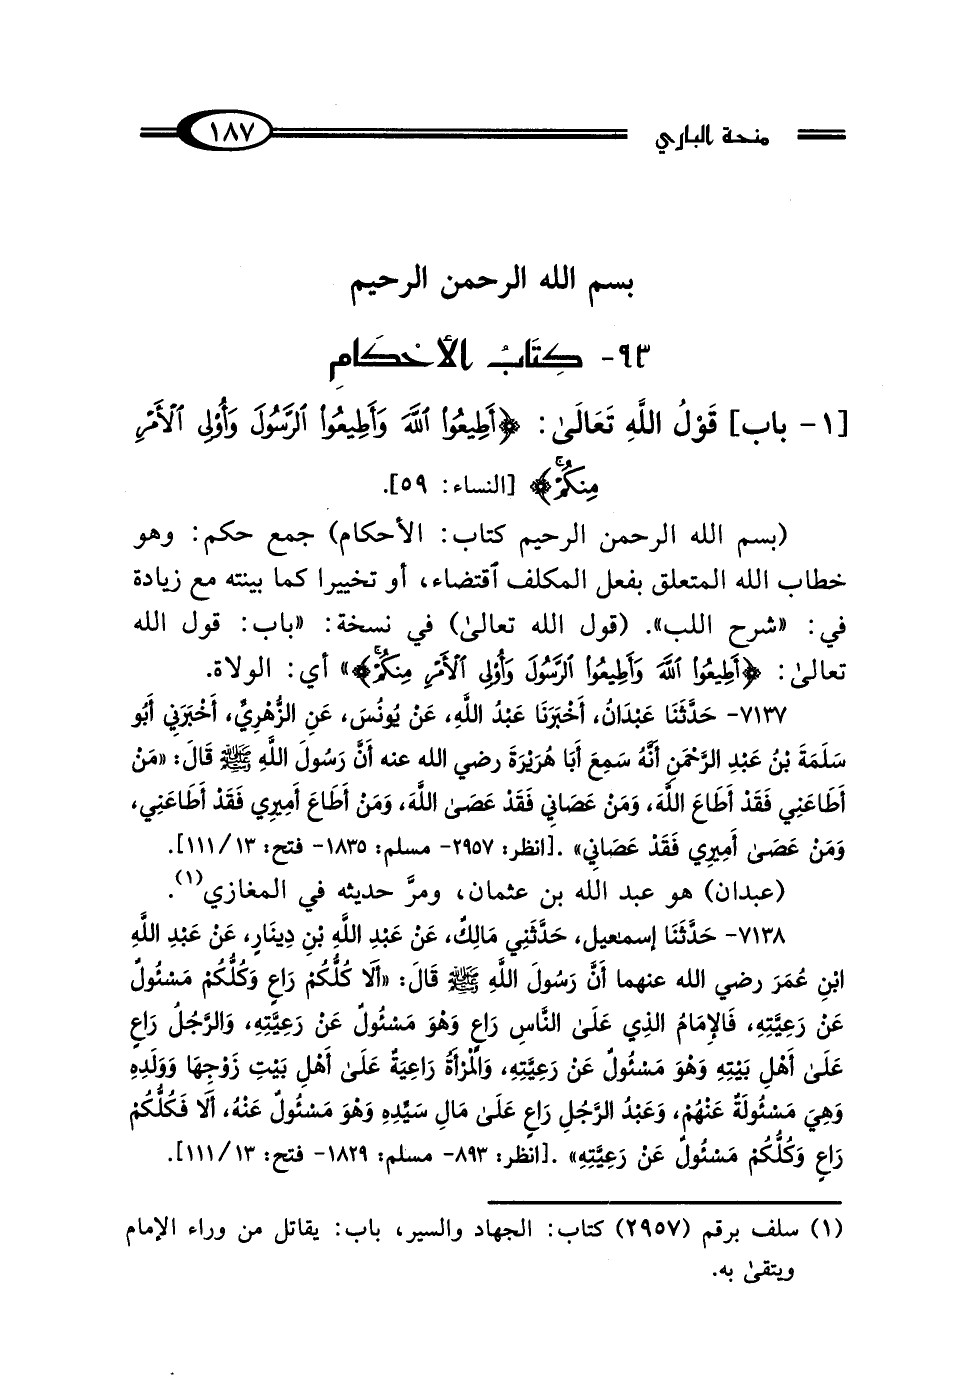 منحة الباري ١٨٧
بسم الله الرحمن الرحيم
٩٣- كِتَابُ الأَحْكَامِ
[١- باب] قَوْلُ اللَّهِ تَعَالَىٰ: ﴿أَطِيعُوا۟ ٱللَّهَ وَأَطِيعُوا۟ ٱلرَّسُولَ وَأُو۟لِى ٱلْأَمْرِ
مِنكُمْ ۚ﴾ [النساء: ٥٩].
(بسم الله الرحمن الرحيم كتاب: الأحكام) جمع حكم: وهو
خطاب الله المتعلق بفعل المكلف ٱقتضاء، أو تخييرا كما بينته مع زيادة
في: «شرح اللب». (قول الله تعالىٰ) في نسخة: «باب: قول الله
تعالىٰ: ﴿أَطِيعُوا۟ ٱللَّهَ وَأَطِيعُوا۟ ٱلرَّسُولَ وَأُو۟لِى ٱلْأَمْرِ مِنكُمْ ۚ﴾» أي: الولاة.
٧١٣٧- حَدَّثَنَا عَبْدَانُ، أَخْبَرَنَا عَبْدُ اللَّهِ، عَنْ يُونُسَ، عَنِ الزُّهْرِيِّ، أَخْبَرَنِي أَبُو
سَلَمَةَ بْنُ عَبْدِ الرَّحْمَنِ أَنَّهُ سَمِعَ أَبَا هُرَيْرَةَ رضي الله عنه أَنَّ رَسُولَ اللَّهِ ﷺ قَالَ: «مَنْ
أَطَاعَنِي فَقَدْ أَطَاعَ اللَّهَ، وَمَنْ عَصَانِي فَقَدْ عَصَىٰ اللَّهَ، وَمَنْ أَطَاعَ أَمِيرِي فَقَدْ أَطَاعَنِي،
وَمَنْ عَصَىٰ أَمِيرِي فَقَدْ عَصَانِي» .[انظر: ٢٩٥٧- مسلم: ١٨٣٥- فتح: ١٣/ ١١١].
(عبدان) هو عبد الله بن عثمان، ومرَّ حديثه في المغازي(١).
٧١٣٨- حَدَّثَنَا إسمٰعيل، حَدَّثَنِي مَالِكٌ، عَنْ عَبْدِ اللَّهِ بْنِ دِينَارٍ، عَنْ عَبْدِ اللَّهِ
ابْنِ عُمَرَ رضي الله عنهما أَنَّ رَسُولَ اللَّهِ ﷺ قَالَ: «أَلَا كُلُّكُمْ رَاعٍ وَكُلُّكُمْ مَسْئُولٌ
عَنْ رَعِيَّتِهِ، فَالإِمَامُ الذِي عَلَىٰ النَّاسِ رَاعٍ وَهْوَ مَسْئُولٌ عَنْ رَعِيَّتِهِ، وَالرَّجُلُ رَاعٍ
عَلَىٰ أَهْلِ بَيْتِهِ وَهْوَ مَسْئُولٌ عَنْ رَعِيَّتِهِ، وَالْمَرْأَةُ رَاعِيَةٌ عَلَىٰ أَهْلِ بَيْتِ زَوْجِهَا وَوَلَدِهِ
وَهِيَ مَسْئُولَةٌ عَنْهُمْ، وَعَبْدُ الرَّجُلِ رَاعٍ عَلَىٰ مَالِ سَيِّدِهِ وَهْوَ مَسْئُولٌ عَنْهُ، أَلَا فَكُلُّكُمْ
رَاعٍ وَكُلُّكُمْ مَسْئُولٌ عَنْ رَعِيَّتِهِ» .[انظر: ٨٩٣- مسلم: ١٨٢٩- فتح: ١٣/ ١١١].
(١) سلف برقم (٢٩٥٧) كتاب: الجهاد والسير، باب: يقاتل من وراء الإمام
ويتقىٰ به.